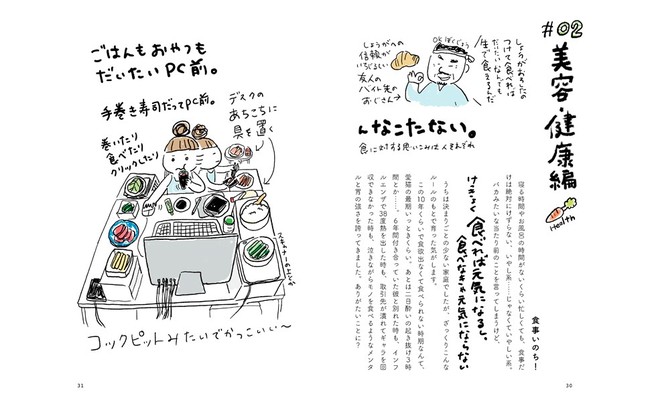 #02
美容・健康編
Health
しょうがおろしたの
つけて食べれば
だいたいなんでも
生で食えるんだ
しょうがへの
信頼が
いちじるしい
友人の
バイト先の
おじさん→
んなこたない。
食に対する思いこみは人それぞれ
食事いのち！
寝る時間やお風呂の時間がないくらい忙しくても、食事だ
けは絶対にけずらない、いやしい系。じゃなくていやしい系。
バカみたいな当たり前のことを言ってしまうけど、
けっきょく
食べれば元気になるし、
食べなきゃ元気にならない
うちは決まりごとの少ない家庭でしたが、ざっくりこんな
ルールのもとで育った気がします。
この10年くらいで食欲出なくて食べられない時期なんて、
愛猫の最期いっときくらい。あとは二日酔いの起き抜け3時
間とか……。6年間付き合っていた彼と別れた時も、インフ
ルエンザで38度熱を出した時も、取引先が潰れてギャラを回
収できなかった時も、泣きながらモノを食べるようなメンタ
ルと胃の強さを誇ってきました。ありがたいことに？
30
ごはんもおやつも
だいたいPC前。
手巻き寿司だってPC前。
デスクの
あちこちに
具を置く
巻いたり
食べたり
クリックしたり
スキャナーの上とか
コックピットみたいでかっこいい〜
31